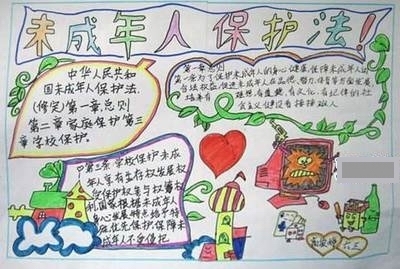 未成年人保护法!
中华人民共和
国未成年人保护法.
(修契)第一章总则
第二章家庭保护第三
章学校保护。
第一章总则
第一条为了保护未成年人的身心健康,保障未成年人
合法权益,促进未成年人在品德、智力、体质等方面发展
培养有理想、有道德、有文化、有纪律的社
会主义建设者接班人
第三条学校保护未成
年人享有生存权发展权
受保护权参与权等权
利国家根据未成年人
身心发展特点给予特
殊优先保护保障未
成年人不受侵犯
六三